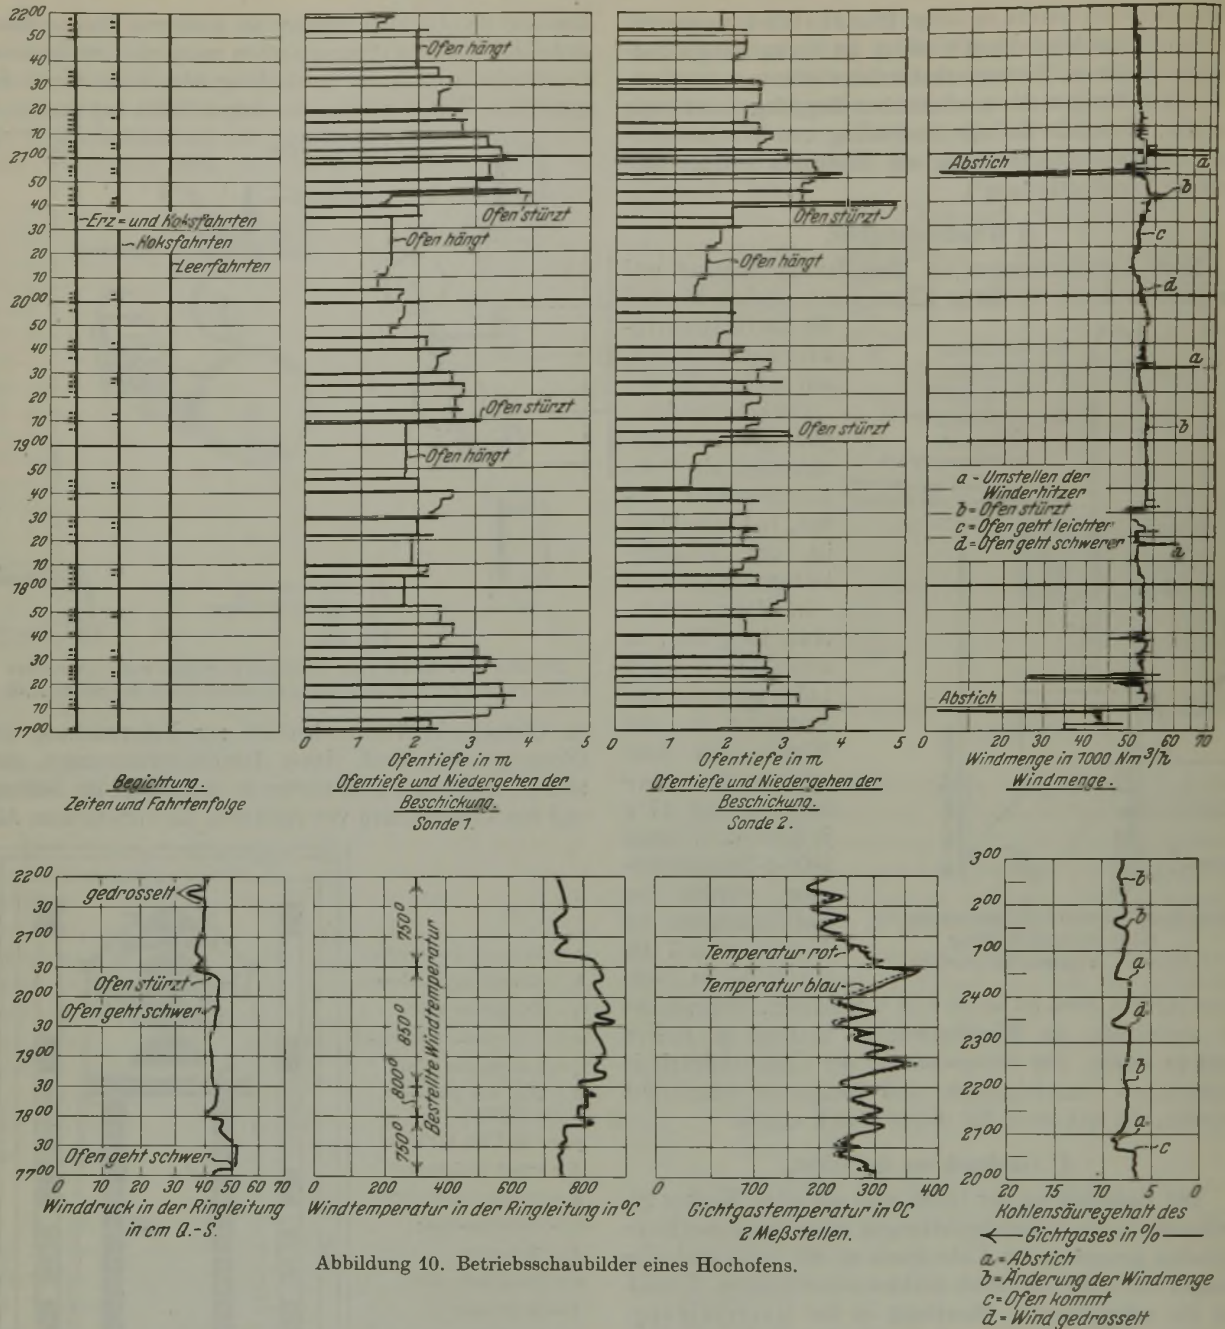 22⁰⁰
50
40
30
20
10
21⁰⁰
50
40
30
20
10
20⁰⁰
50
40
30
20
10
19⁰⁰
50
40
30
20
10
18⁰⁰
50
40
30
20
10
17⁰⁰
Erz= und Koksfahrten
Koksfahrten
Leerfahrten
Begichtung.
Zeiten und Fahrtenfolge
Ofen hängt
Ofen stürzt
Ofen hängt
Ofen stürzt
Ofen hängt
0 1 2 3 4 5
Ofentiefe in m
Ofentiefe und Niedergehen der
Beschickung.
Sonde 1.
Ofen stürzt
Ofen hängt
Ofen stürzt
0 1 2 3 4 5
Ofentiefe in m
Ofentiefe und Niedergehen der
Beschickung.
Sonde 2.
Abstich
a
b
c
d
a
b
a - Umstellen der
Winderhitzer
b = Ofen stürzt
c = Ofen geht leichter
d = Ofen geht schwerer
a
Abstich
0 20 30 40 50 60 70
Windmenge in 1000 Nm³/h
Windmenge.
22⁰⁰
30
21⁰⁰
30
20⁰⁰
30
19⁰⁰
30
18⁰⁰
30
17⁰⁰
gedrosselt
Ofen stürzt
Ofen geht schwer
Ofen geht schwer
0 10 20 30 40 50 60 70
Winddruck in der Ringleitung
in cm Q.-S.
750°
850°
800°
750°
Bestellte Windtemperatur
0 200 400 600 800
Windtemperatur in der Ringleitung in °C
Temperatur rot
Temperatur blau
0 100 200 300 400
Gichtgastemperatur in °C
2 Meßstellen.
3⁰⁰
2⁰⁰
1⁰⁰
24⁰⁰
23⁰⁰
22⁰⁰
21⁰⁰
20⁰⁰
b
b
a
d
b
a
c
20 15 10 5 0
Kohlensäuregehalt des
Gichtgases in %
a = Abstich
b = Änderung der Windmenge
c = Ofen kommt
d = Wind gedrosselt
Abbildung 10. Betriebsschaubilder eines Hochofens.